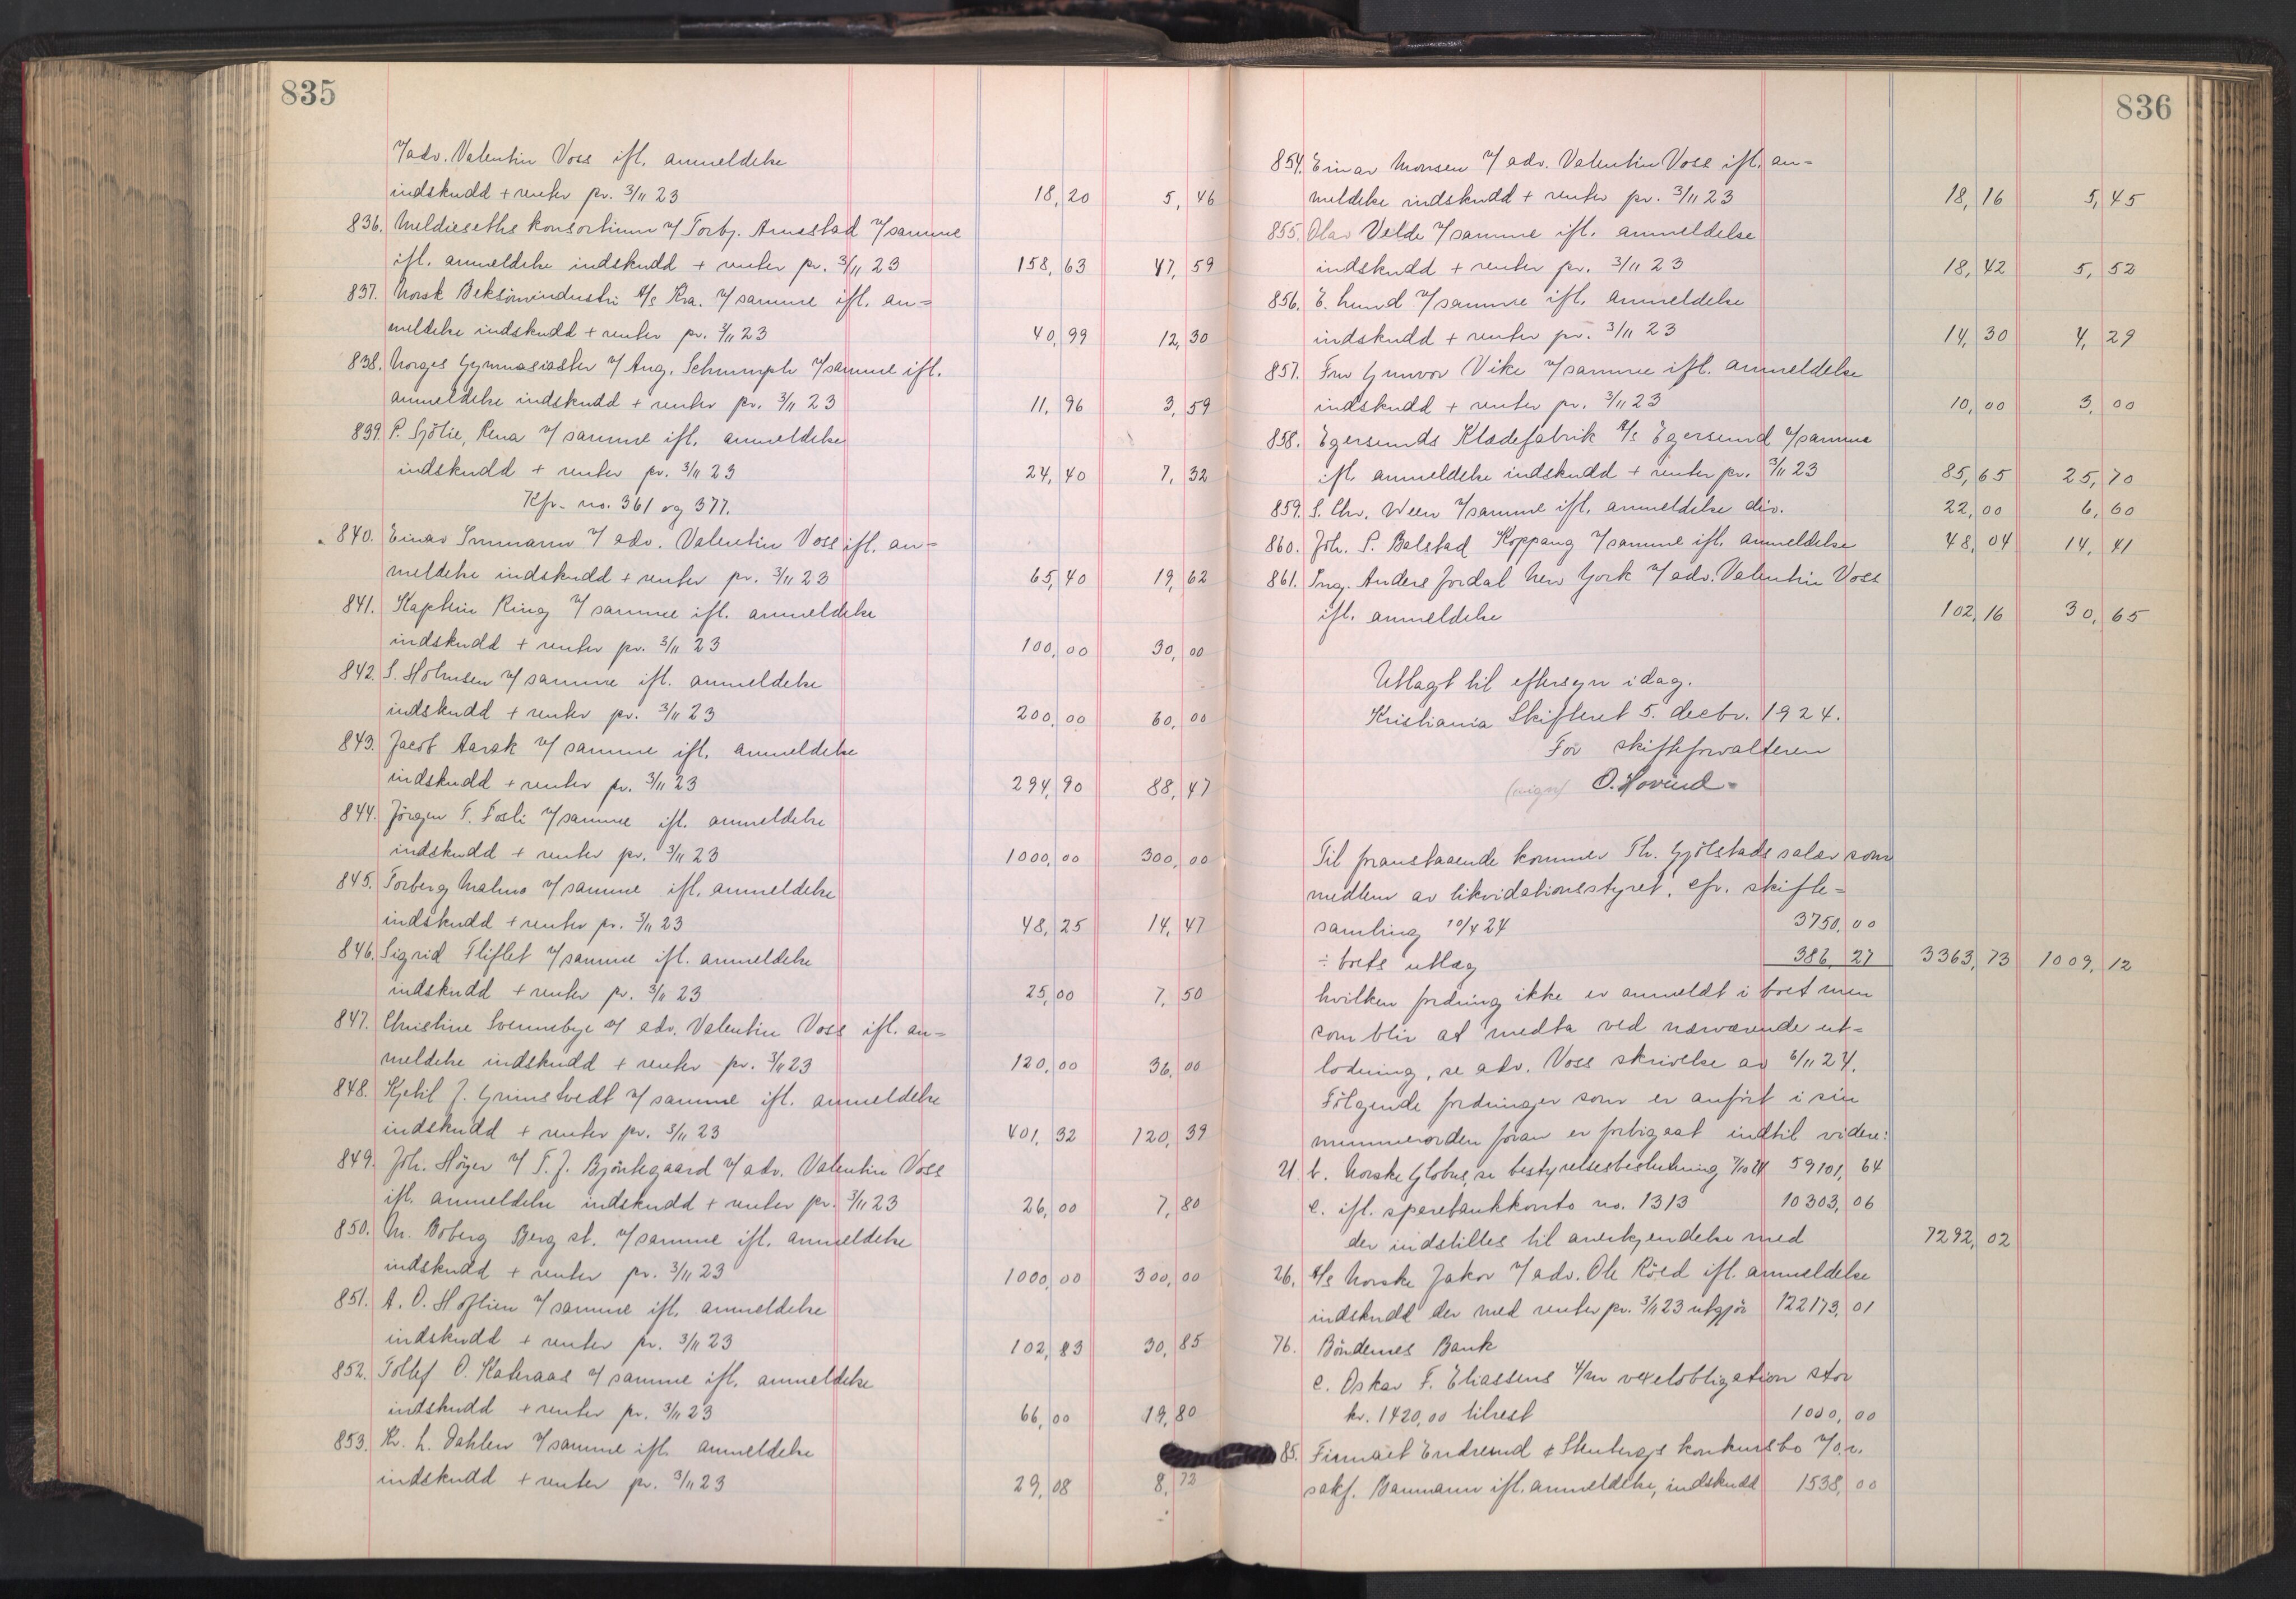 835
v/adv. Valentin Voss ifl. anmeldelse
indskudd + renter pr. 3/11 23 18,20 5,46
836. Meldieseths konsortium v/ Torbj. Arnestad v/samme
ifl. anmeldelse indskudd + renter pr. 3/11 23 158,63 47,59
837. Norsk Beksömindustri A/s Kra. v/samme ifl. an=
meldelse indskudd + renter pr. 3/11 23 40,99 12,30
838. Norges Gymnasiaster v/ Aug. Schrumph v/samme ifl.
anmeldelse indskudd + renter pr. 3/11 23 11,96 3,59
839. P. Sjölie, Rena v/ samme ifl. anmeldelse
indskudd + renter pr. 3/11 23 24,40 7,32
Kfr. no. 361 og 377.
840. Einar v/ adv. Valentin Voss ifl. an=
meldelse indskudd + renter pr. 3/11 23 65,40 19,62
841. Kaptein Ring v/ samme ifl. anmeldelse
indskudd + renter pr. 3/11 23 100,00 30,00
842. S. Holmsen v/ samme ifl. anmeldelse
indskudd + renter pr. 3/11 23 200,00 60,00
843. Jacob Aarak v/ samme ifl. anmeldelse
indskudd + renter pr. 3/11 23 294,90 88,47
844. Jörgen T. Fosli v/samme ifl. anmeldelse
indskudd + renter pr. 3/11 23 1000,00 300,00
845. Torberg Malmo v/samme ifl. anmeldelse
indskudd + renter pr. 3/11 23 48,25 14,47
846. Sigrid Fliflet v/samme ifl. anmeldelse
indskudd + renter pr. 3/11 23 25,00 7,50
847. Christine Svennebye v/ adv. Valentin Voss ifl. an=
meldelse indskudd + renter pr. 3/11 23 120,00 36,00
848. Kjetil J. Grimstvedt v/ samme ifl. anmeldelse
indskudd + renter pr. 3/11 23 401,32 120,39
849. Joh. Höyer v/ T. J. Björkegaard v/ adv. Valentin Voss
ifl. anmeldelse indskudd + renter pr. 3/11 23 26,00 7,80
850. M. Boberg Berg st. v/samme ifl. anmeldelse
indskudd + renter pr. 3/11 23 1000,00 300,00
851. A. O. Hoflien v/samme ifl. anmeldelse
indskudd + renter pr. 3/11 23 102,83 30,85
852. Tollef O. Kateraas v/ samme ifl. anmeldelse
indskudd + renter pr. 3/11 23 66,00 19,80
853. Kr. L. Dahlen v/samme ifl. anmeldelse
indskudd + renter pr. 3/11 23 29,08 8,72
836
854. Einar Monsen v/ adv. Valentin Voss ifl. an=
meldelse indskudd + renter pr. 3/11 23 18,16 5,45
855. Olav Velde v/samme ifl. anmeldelse
indskudd + renter pr. 3/11 23 18,42 5,52
856. E. Lund v/samme ifl. anmeldelse
indskudd + renter pr. 3/11 23 14,30 4,29
857. Fru Gunvor Vike v/samme ifl. anmeldelse
indskudd + renter pr. 3/11 23 10,00 3,00
858. Egersunds Klædefabrik A/s Egersund v/samme
ifl. anmeldelse indskudd + renter pr. 3/11 23 85,65 25,70
859. S. Chr. Ween v/samme ifl. anmeldelse div. 22,00 6,60
860. Joh. P. Balstad Koppang v/samme ifl. anmeldelse 48,04 14,41
861. Ing. Anders Jordal New York v/ adv. Valentin Voss
ifl. anmeldelse 102,16 30,65
Utlagt til eftersyn idag.
Kristiania Skifteret 5. decbr. 1924.
For skifteforvalteren
(sign) O. Hovind =
Til foranstaaende kommer Th. Gjölstads salær som
medlem av likvidationsstyret, cfr. skifte=
samling 10/4 24 3750,00
÷ boets utlæg 386,27 3363,73 1009,12
hvilken fordring ikke er anmeldt i boet men
som blir at medta ved nærværende ut=
lodning, se adv. Voss skrivelse av 6/11 24.
Fölgende fordringer som er anfört i sin
nummerorden foran er forbigaat indtil videre:
21 b. Norske Globus, se bestyrelsesbeslutning 7/10 24 59101,64
c. ifl. sparebankkonto no. 1313 10303,06
der indstilles til anerkjendelse med 7292,02
26. A/s Norske Jakor v/ adv. Ole Röed ifl. anmeldelse
indskudd der med renter pr. 3/11 23 utgjör 122173,01
76. Böndernes Bank
c. Oskar F. Eliassens v/m vexelobligation stor
kr. 1420,00 tilrest 1000,00
85. Firmaet Endresund & Stenbergs konkursbo v/o.r.
sakf. Baumann ifl. anmeldelse, indskudd 1538,00